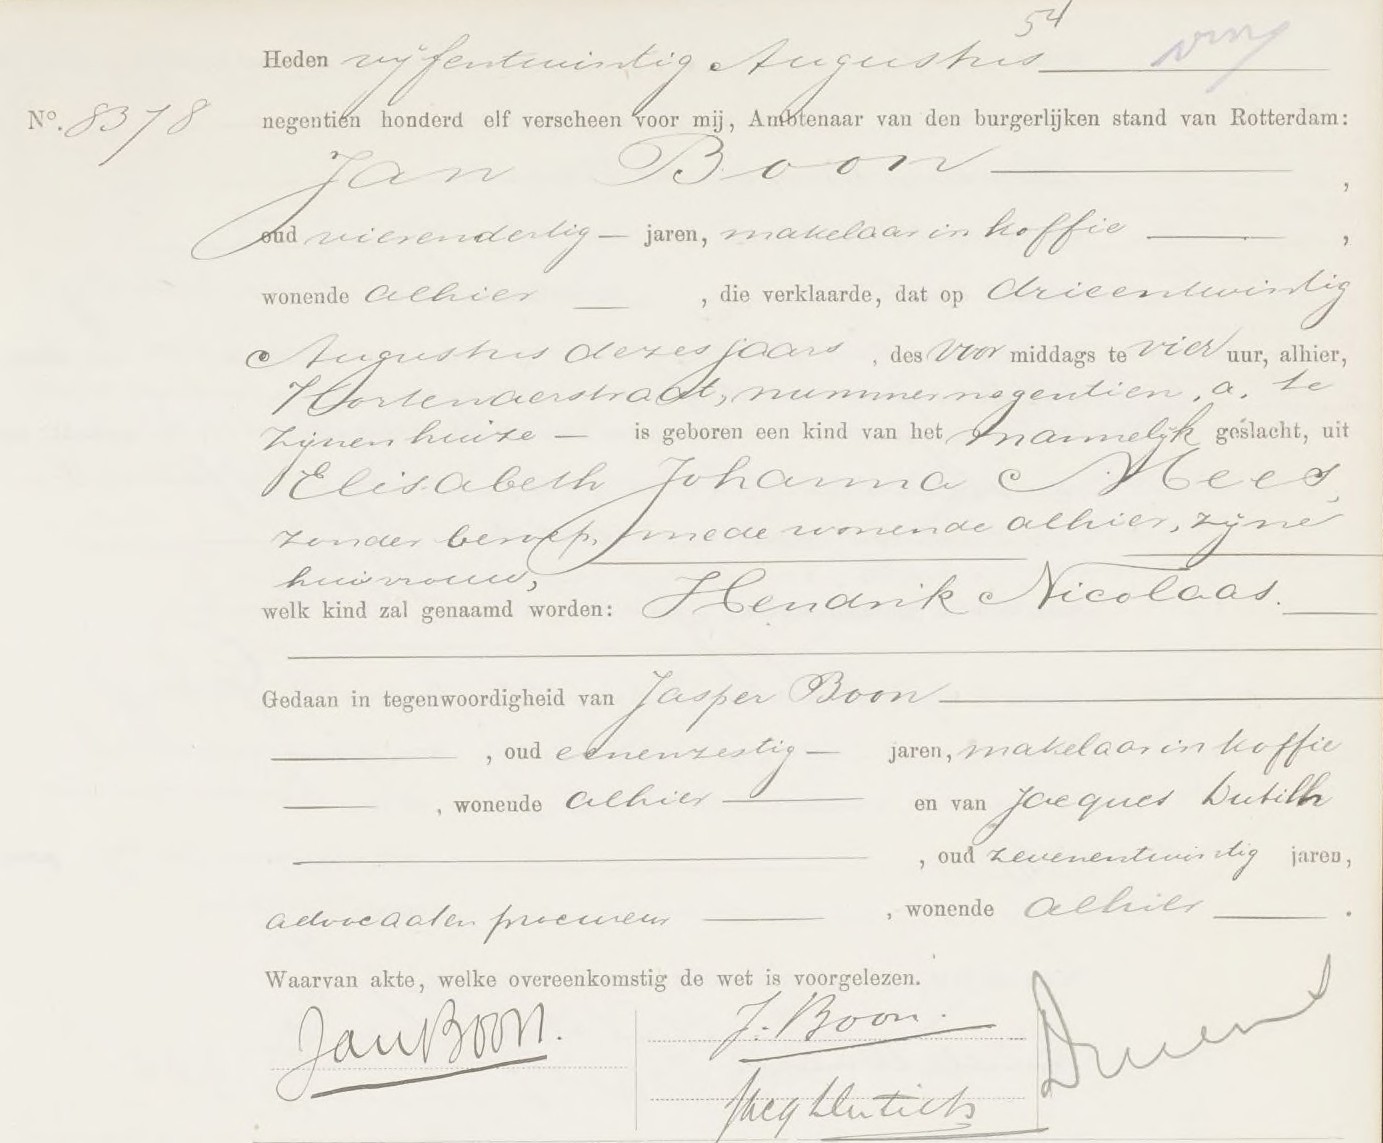 54
Heden vijfentwintig Augustus
No. 8378
negentien honderd elf verscheen voor mij, Ambtenaar van den burgerlijken stand van Rotterdam:
Jan Boon ,
oud vierendertig jaren, makelaar in koffie ,
wonende alhier , die verklaarde, dat op drieentwintig
Augustus dezes jaars , des voor middags te vier uur, alhier,
Kortenaerstraat, nummer negentien, a. te
zijnen huize is geboren een kind van het mannelijk geslacht, uit
Elisabeth Johanna Mees,
zonder beroep, mede wonende alhier, zijne
huisvrouw,
welk kind zal genaamd worden: Hendrik Nicolaas.
Gedaan in tegenwoordigheid van Jasper Boon
, oud eenenzestig jaren, makelaar in koffie
, wonende alhier en van Jacques Dutilh
, oud zevenentwintig jaren,
advocaat en procureur , wonende alhier .
Waarvan akte, welke overeenkomstig de wet is voorgelezen.
Jan Boon. J. Boon.
Jacq Dutilh